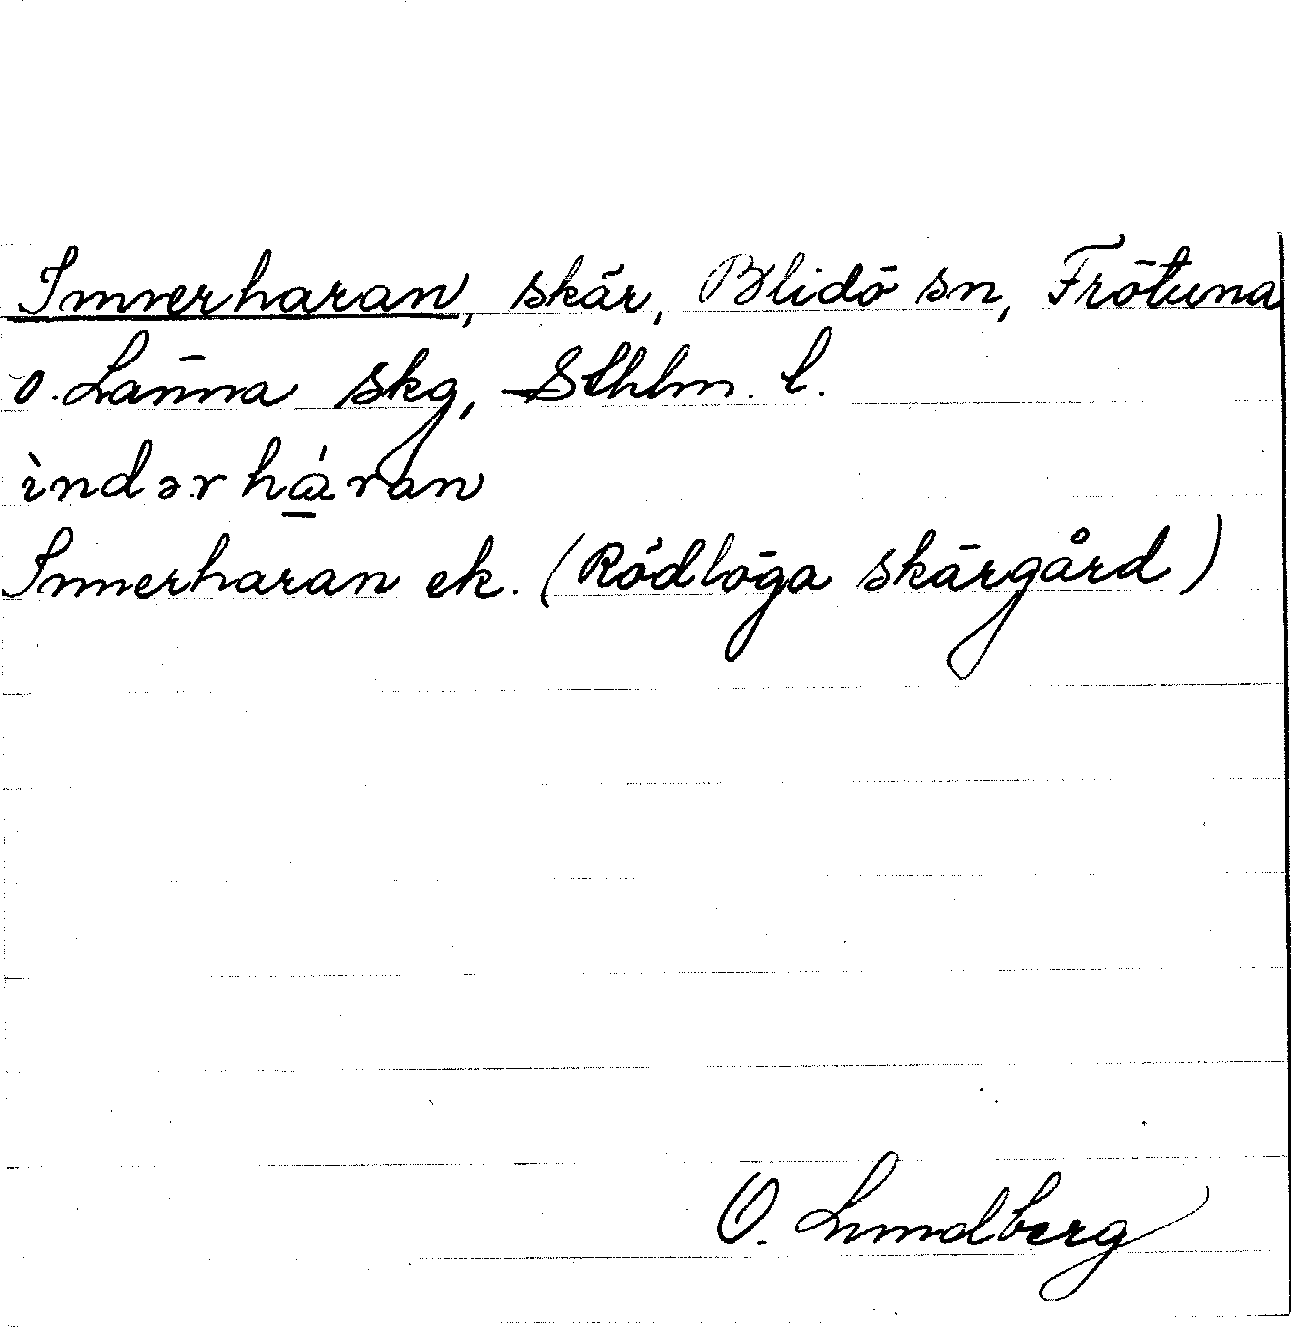 Innerharan, skär, Blidö sn, Frötuna
o. Länna skg, Sthlm. l.
ìndərhá̱ran
Innerharan ek. (Rödlöga skärgård)
O. Lundberg